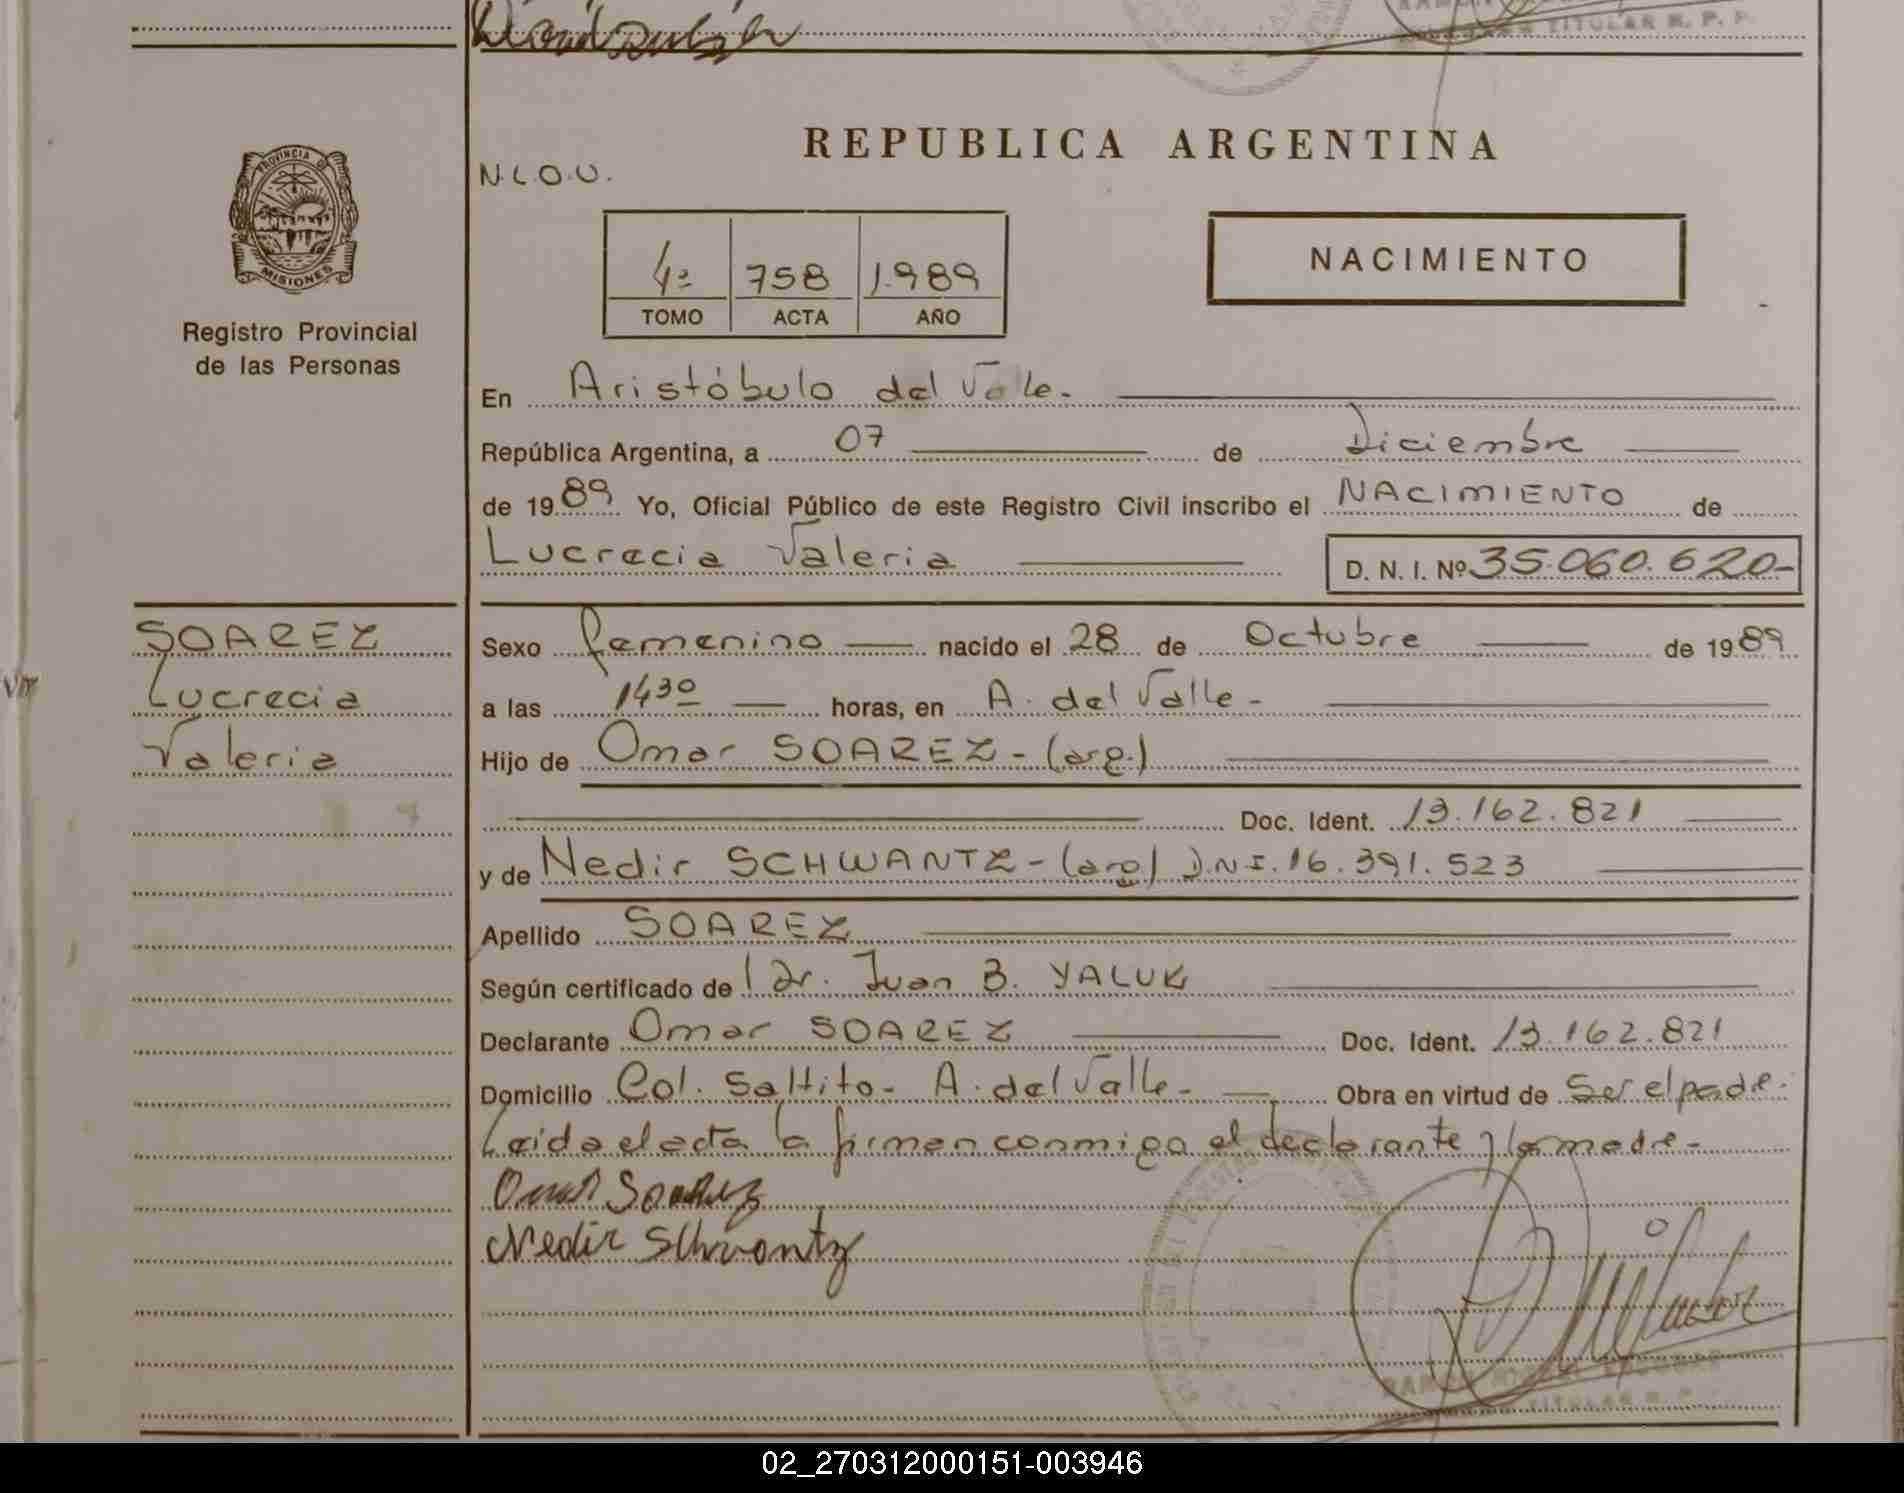 REPUBLICA ARGENTINA
N.L.O.U.
PROVINCIA DE
MISIONES
Registro Provincial
de las Personas
4º 758 1.989
TOMO ACTA AÑO
NACIMIENTO
En Aristóbulo del Valle.
República Argentina, a 07 de Diciembre
de 1989 Yo, Oficial Público de este Registro Civil inscribo el NACIMIENTO de
Lucrecia Valeria D. N. I. Nº 35.060.620-
SOAREZ
Lucrecia
Valeria
Sexo femenino nacido el 28 de Octubre de 1989
a las 1430 horas, en A. del Valle-
Hijo de Omar SOAREZ - (arg.)
Doc. Ident. 13.162.821
y de Nedir SCHWANTZ - (arg) D.N.I. 16.391.523
Apellido SOAREZ
Según certificado de l Dr. Juan B. YALUK
Declarante Omar SOAREZ Doc. Ident. 13.162.821
Domicilio Col. Saltito- A. del Valle- Obra en virtud de Ser el padre.
Leida el acta la firman conmigo el declarante y la madre-
Omar Soarez
Nedir Schwantz
TITULAR R. P.
02_270312000151-003946